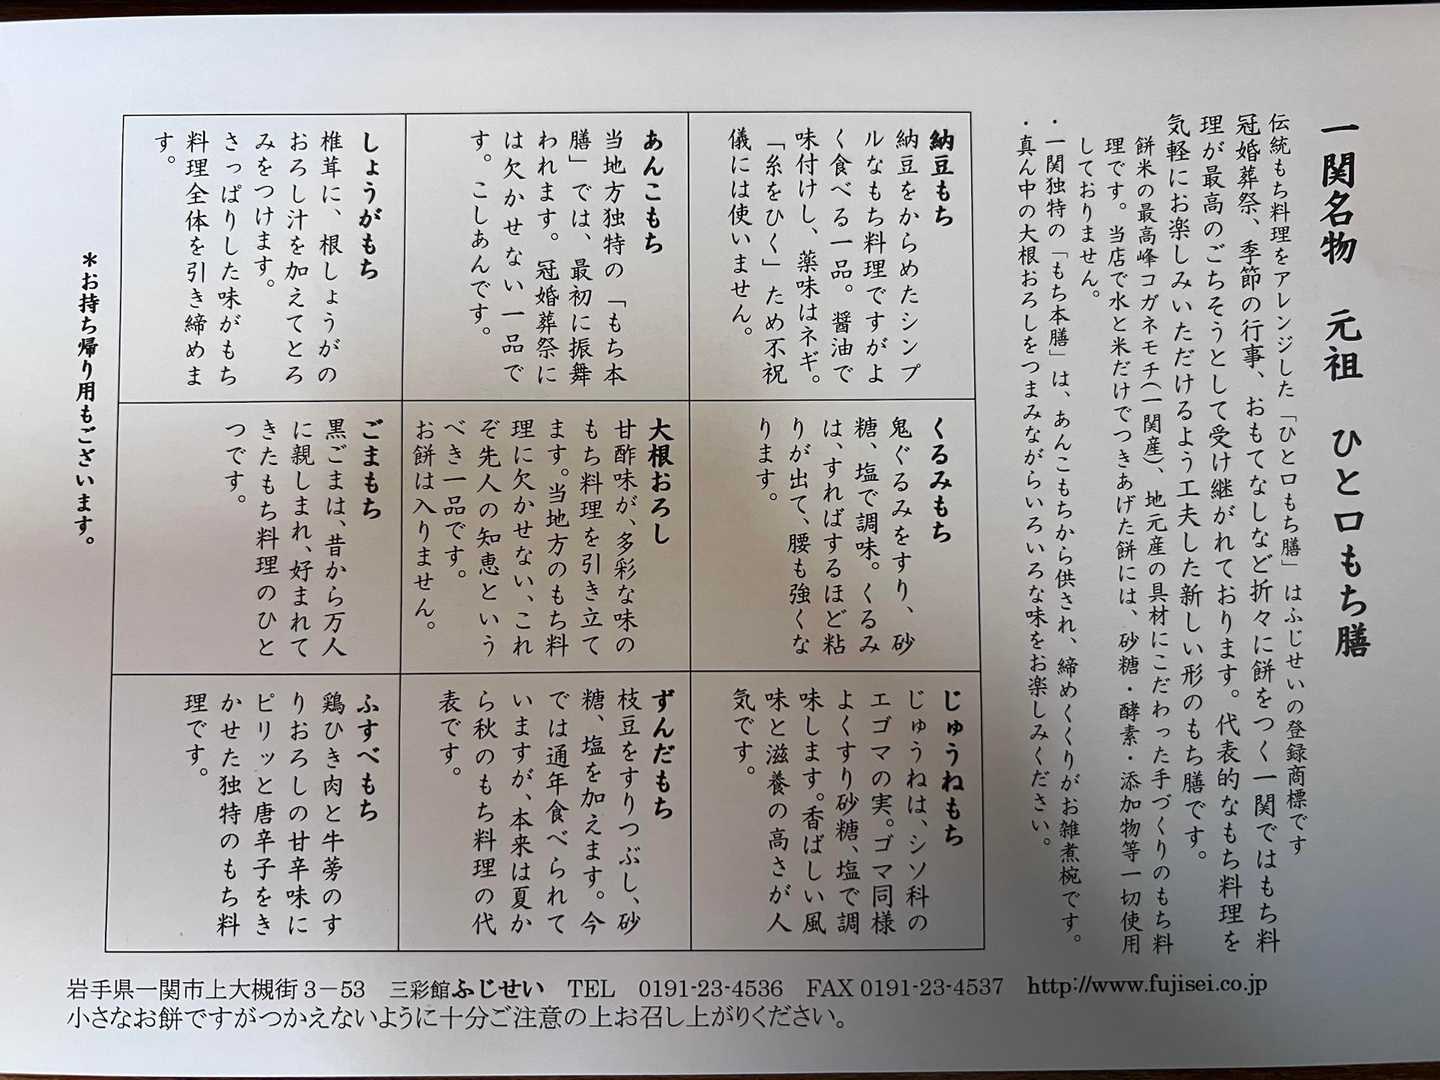 一関名物　元祖　ひと口もち膳
伝統もち料理をアレンジした「ひと口もち膳」はふじせいの登録商標です
冠婚葬祭、季節の行事、おもてなしなど折々に餅をつく一関ではもち料
理が最高のごちそうとして受け継がれております。代表的なもち料理を
気軽にお楽しみいただけるよう工夫した新しい形のもち膳です。
餅米の最高峰コガネモチ(一関産)、地元産の具材にこだわった手づくりのもち料
理です。当店で水と米だけでつきあげた餅には、砂糖・酵素・添加物等一切使用
しておりません。
・一関独特の「もち本膳」は、あんこもちから供され、締めくくりがお雑煮椀です。
・真ん中の大根おろしをつまみながらいろいろな味をお楽しみください。
納豆もち
納豆をからめたシンプ
ルなもち料理ですがよ
く食べる一品。醤油で
味付けし、薬味はネギ。
「糸をひく」ため不祝
儀には使いません。
くるみもち
鬼ぐるみをすり、砂
糖、塩で調味。くるみ
は、すればするほど粘
りが出て、腰も強くな
ります。
じゅうねもち
じゅうねは、シソ科の
エゴマの実。ゴマ同様
よくすり砂糖、塩で調
味します。香ばしい風
味と滋養の高さが人
気です。
あんこもち
当地方独特の「もち本
膳」では、最初に振舞
われます。冠婚葬祭に
は欠かせない一品で
す。こしあんです。
大根おろし
甘酢味が、多彩な味の
もち料理を引き立て
ます。当地方のもち料
理に欠かせない、これ
ぞ先人の知恵という
べき一品です。
お餅は入りません。
ずんだもち
枝豆をすりつぶし、砂
糖、塩を加えます。今
では通年食べられて
いますが、本来は夏か
ら秋のもち料理の代
表です。
しょうがもち
椎茸に、根しょうがの
おろし汁を加えてとろ
みをつけます。
さっぱりした味がもち
料理全体を引き締めま
す。
ごまもち
黒ごまは、昔から万人
に親しまれ、好まれて
きたもち料理のひと
つです。
ふすべもち
鶏ひき肉と牛蒡のす
りおろしの甘辛味に
ピリッと唐辛子をき
かせた独特のもち料
理です。
＊お持ち帰り用もございます。
岩手県一関市上大槻街3－53　三彩館ふじせい　TEL　0191-23-4536　FAX 0191-23-4537　http://www.fujisei.co.jp
小さなお餅ですがつかえないように十分ご注意の上お召し上がりください。